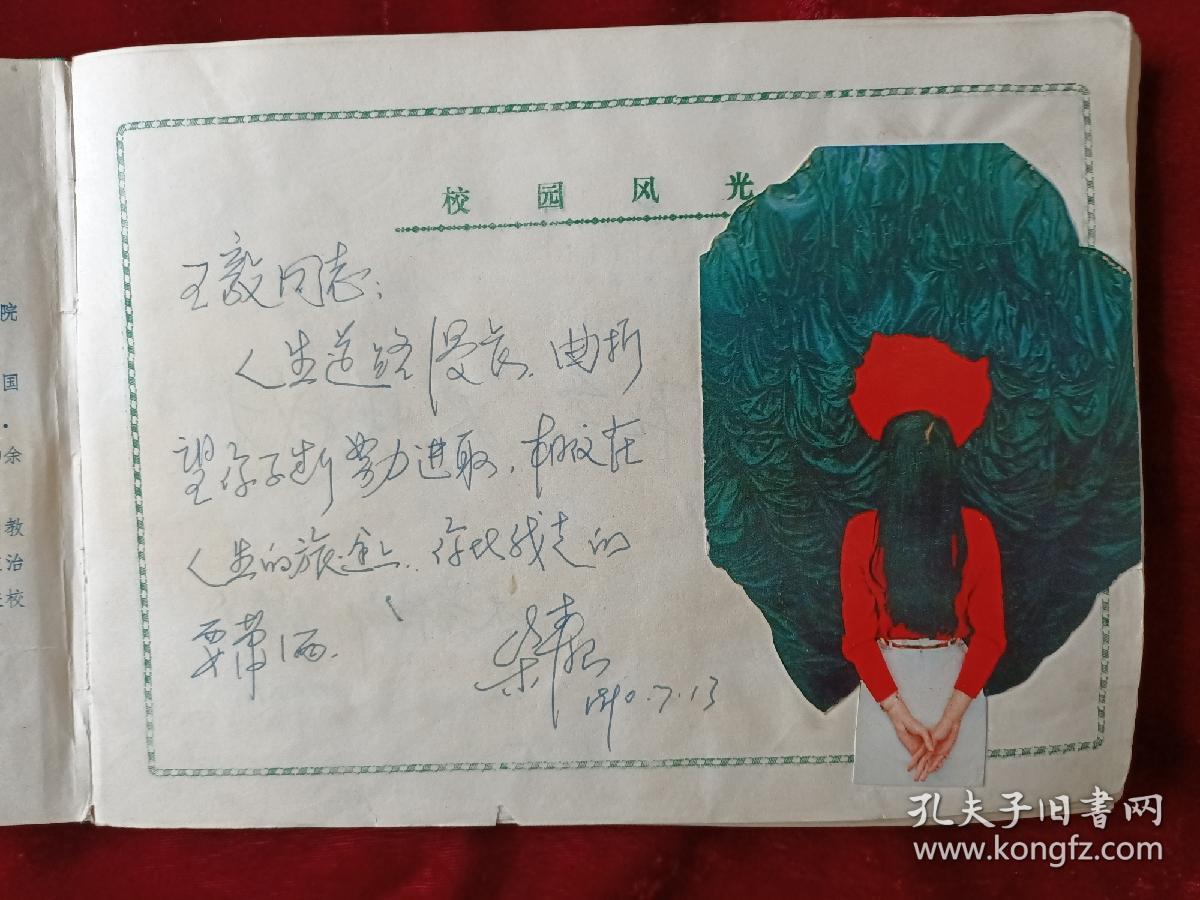 校园风光
王毅同志:
人生道路漫长、曲折
望你不断努力进取、相汶在
人生的旅途上、你比我走的
要潇洒.
柴
7.13
院
国
·
余
教
治
校
孔夫子旧书网
www.kongfz.com